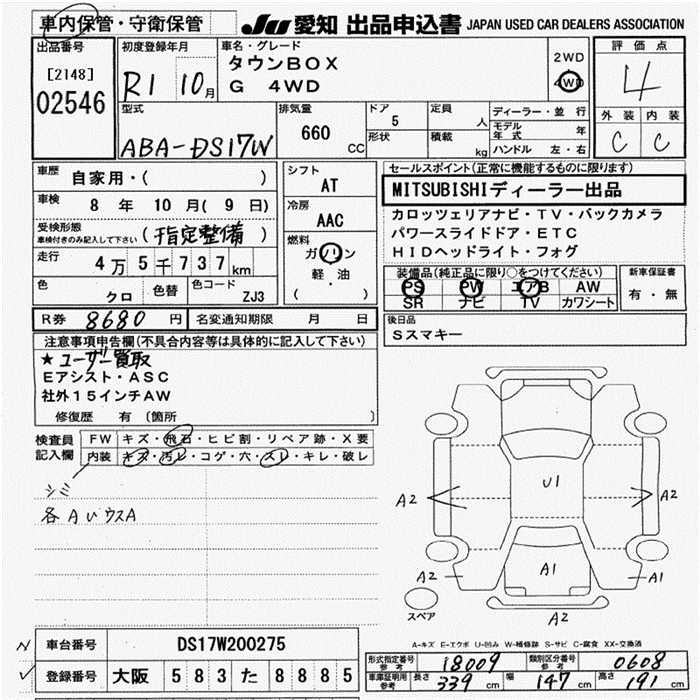 車内保管・守衛保管
JU 愛知 出品申込書 JAPAN USED CAR DEALERS ASSOCIATION
出品番号
[2148]
02546
初度登録年月
R1 10月
車名・グレード
タウンBOX
G 4WD
2WD
4WD
評価点
4
外装 内装
C C
型式
ABA-DS17W
排気量
660 CC
ドア 5
形状
定員 人
積載 kg
ディーラー・並行
モデル年式 年
ハンドル 左・右
車歴 自家用・( )
車検 8年 10月(9日)
受検形態
車検付きのみ記入して下さい (指定整備)
走行 4万5千737km
色 クロ 色替 色コード ZJ3
シフト
AT
冷房
AAC
燃料
ガソリン
軽・油
( )
セールスポイント(正常に機能するものに限ります)
MITSUBISHIディーラー出品
カロッツェリアナビ・TV・バックカメラ
パワースライドドア・ETC
HIDヘッドライト・フォグ
装備品(純正品に限り○をつけてください)
PS PW エアB AW
SR ナビ TV カワシート
新車保証書
有・無
R券 8680円 名変通知期限 月 日
後日品
Sスマキー
注意事項申告欄(不具合内容等は具体的に記入して下さい)
★ユーザー買取
Eアシスト・ASC
社外15インチAW
修復歴 有 〔箇所 〕
検査員
記入欄
FW キズ・飛石・ヒビ割・リペア跡・X要
内装 キズ・汚レ・コゲ・穴・スレ・キレ・破レ
シミ
各AUウスA
U1
A2
A2
A1
A2
A1
A2
スペア
A-キズ E-エクボ U-凹み W-補修跡 S-サビ C-腐食 XX-交換済
車台番号 DS17W200275
登録番号 大阪 583 た 8885
形式指定番号
参考
18009
類別区分番号
参考
0608
車庫証明用
参考
長さ 339cm 幅 147cm 高さ 191cm